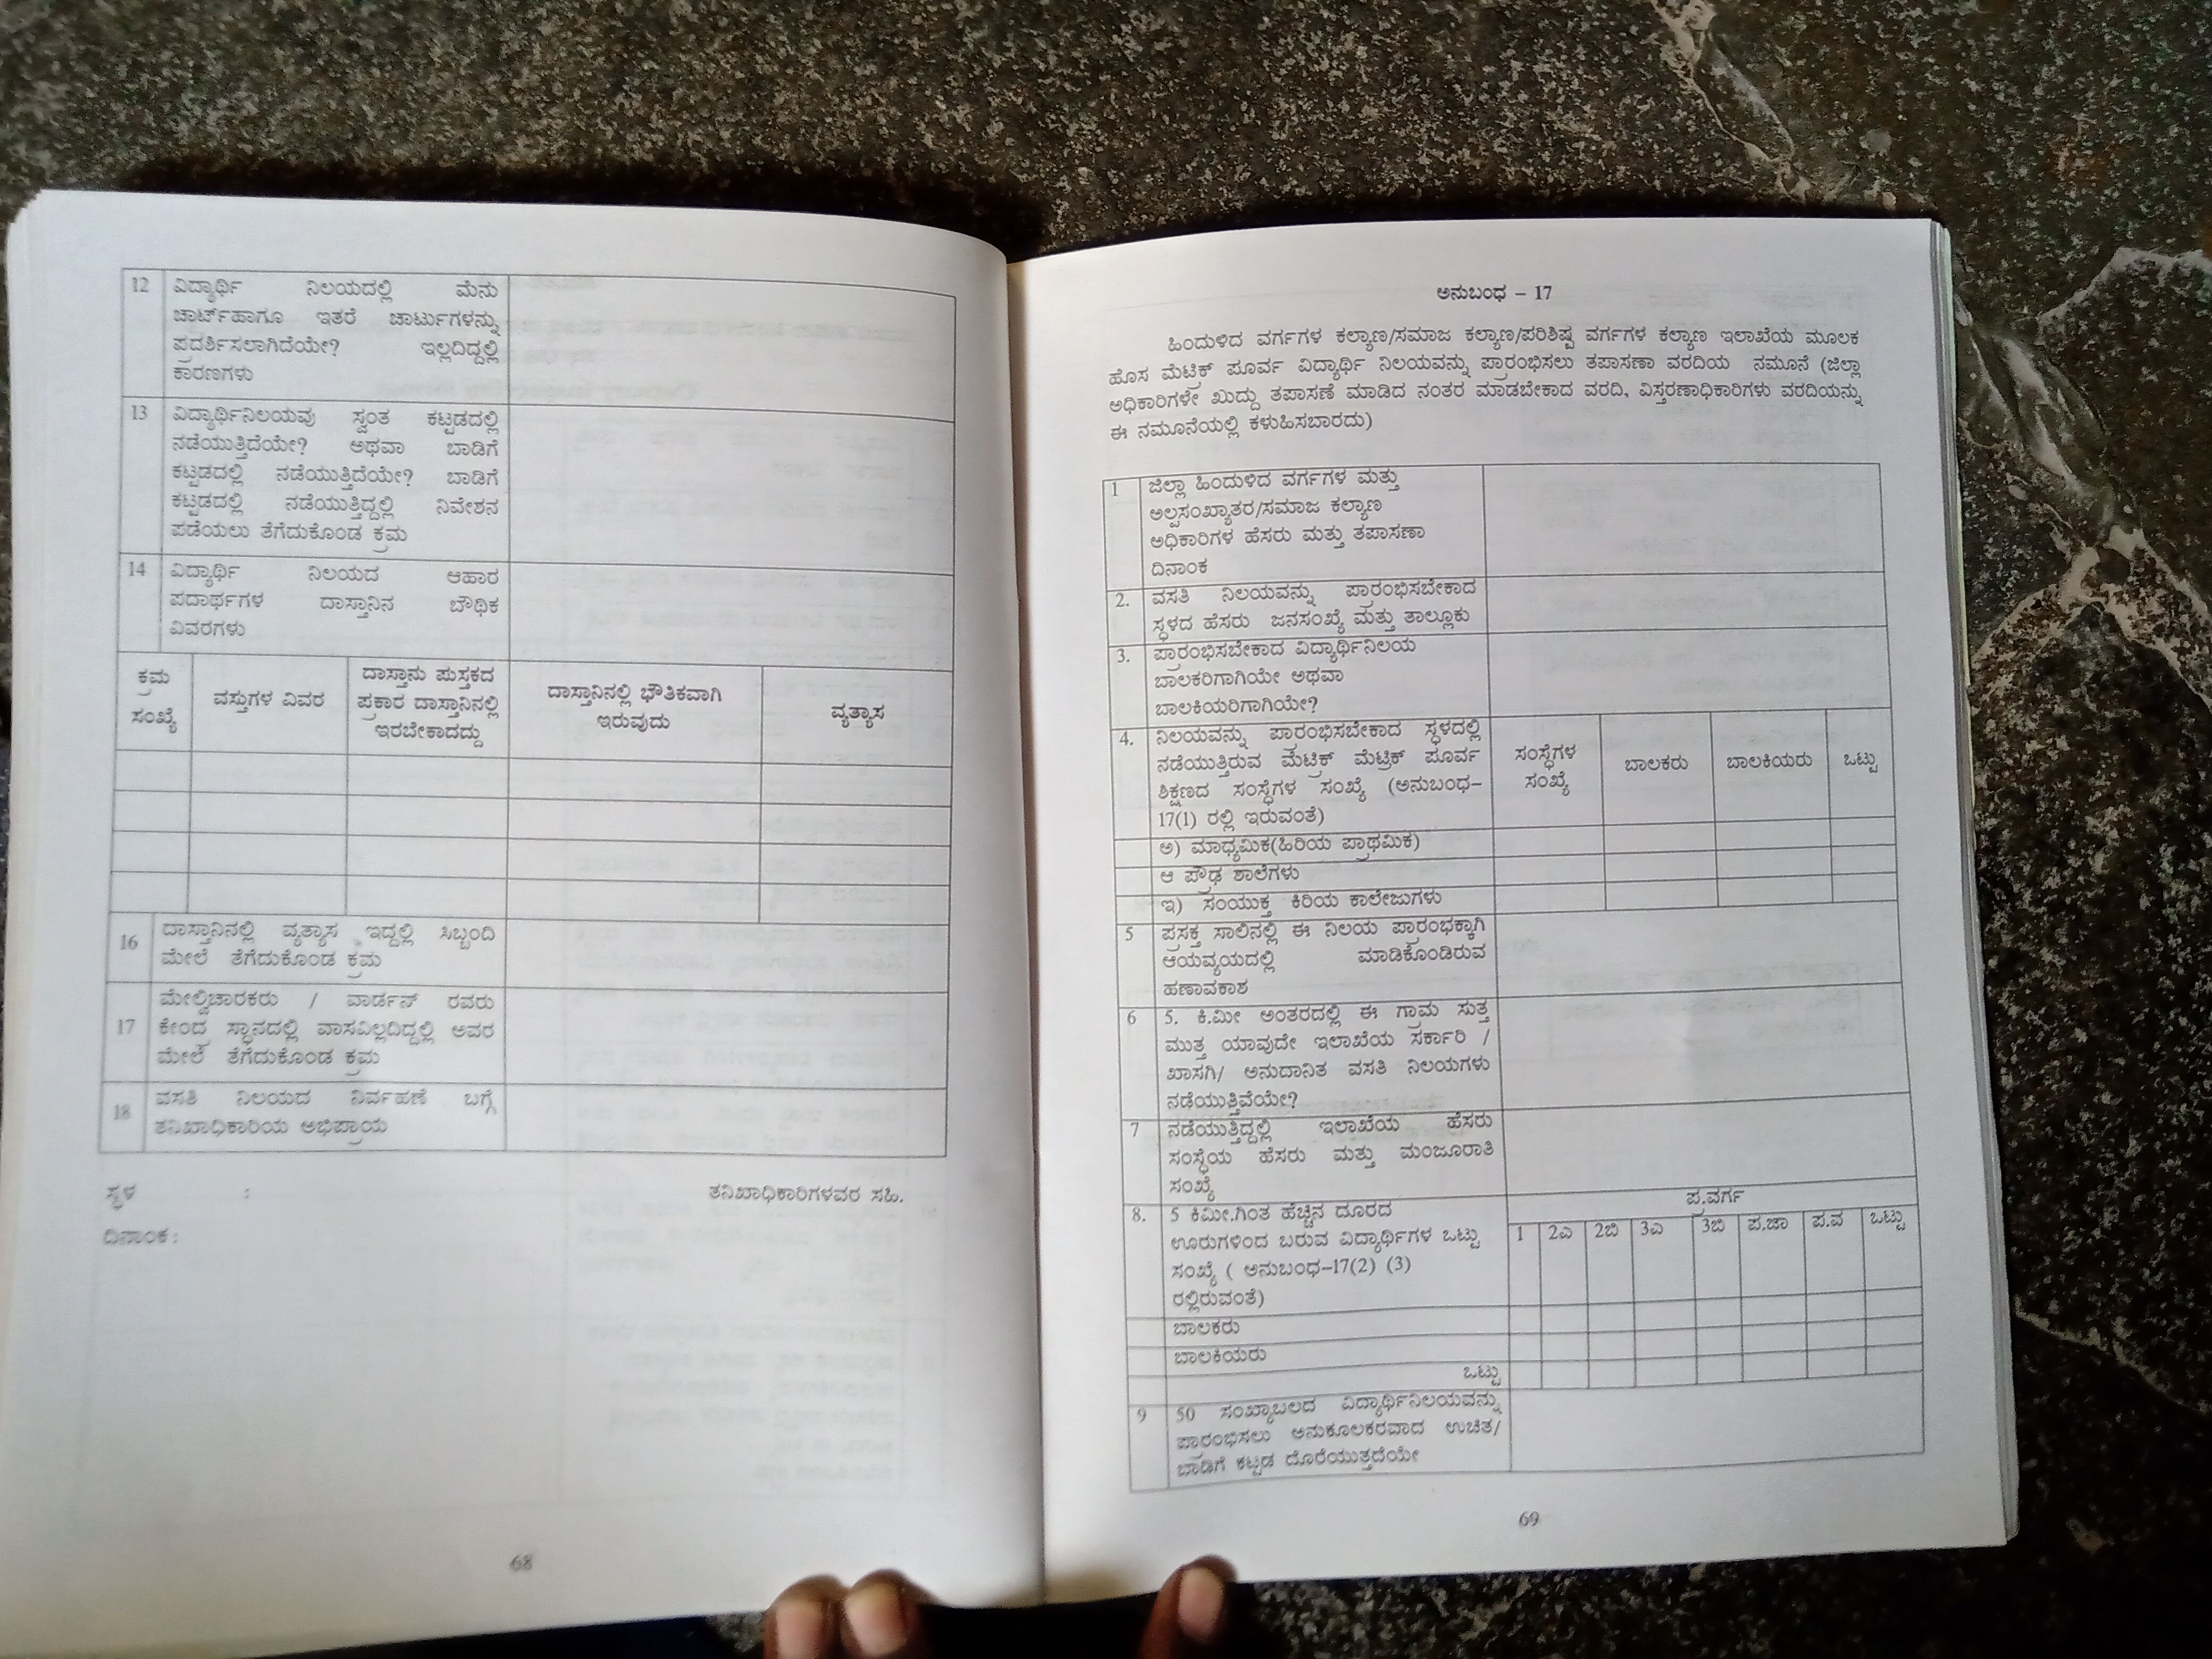 12 ವಿದ್ಯಾರ್ಥಿ ನಿಲಯದಲ್ಲಿ ಮೆನು
ಚಾರ್ಟ್‌ಹಾಗೂ ಇತರೆ ಚಾರ್ಟುಗಳನ್ನು
ಪ್ರದರ್ಶಿಸಲಾಗಿದೆಯೇ? ಇಲ್ಲದಿದ್ದಲ್ಲಿ
ಕಾರಣಗಳು
13 ವಿದ್ಯಾರ್ಥಿನಿಲಯವು ಸ್ವಂತ ಕಟ್ಟಡದಲ್ಲಿ
ನಡೆಯುತ್ತಿದೆಯೇ? ಅಥವಾ ಬಾಡಿಗೆ
ಕಟ್ಟಡದಲ್ಲಿ ನಡೆಯುತ್ತಿದೆಯೇ? ಬಾಡಿಗೆ
ಕಟ್ಟಡದಲ್ಲಿ ನಡೆಯುತ್ತಿದ್ದಲ್ಲಿ ನಿವೇಶನ
ಪಡೆಯಲು ತೆಗೆದುಕೊಂಡ ಕ್ರಮ
14 ವಿದ್ಯಾರ್ಥಿ ನಿಲಯದ ಆಹಾರ
ಪದಾರ್ಥಗಳ ದಾಸ್ತಾನಿನ ಬೌಥಿಕ
ವಿವರಗಳು
ಕ್ರಮ ಸಂಖ್ಯೆ
ವಸ್ತುಗಳ ವಿವರ
ದಾಸ್ತಾನು ಪುಸ್ತಕದ
ಪ್ರಕಾರ ದಾಸ್ತಾನಿನಲ್ಲಿ
ಇರಬೇಕಾದದ್ದು
ದಾಸ್ತಾನಿನಲ್ಲಿ ಭೌತಿಕವಾಗಿ
ಇರುವುದು
ವ್ಯತ್ಯಾಸ
16 ದಾಸ್ತಾನಿನಲ್ಲಿ ವ್ಯತ್ಯಾಸ ಇದ್ದಲ್ಲಿ ಸಿಬ್ಬಂದಿ
ಮೇಲೆ ತೆಗೆದುಕೊಂಡ ಕ್ರಮ
17 ಮೇಲ್ವಿಚಾರಕರು / ವಾರ್ಡನ್ ರವರು
ಕೇಂದ್ರ ಸ್ಥಾನದಲ್ಲಿ ವಾಸವಿಲ್ಲದಿದ್ದಲ್ಲಿ ಅವರ
ಮೇಲೆ ತೆಗೆದುಕೊಂಡ ಕ್ರಮ
18 ವಸತಿ ನಿಲಯದ ನಿರ್ವಹಣೆ ಬಗ್ಗೆ
ತನಿಖಾಧಿಕಾರಿಯ ಅಭಿಪ್ರಾಯ
ಸ್ಥಳ : ತನಿಖಾಧಿಕಾರಿಗಳವರ ಸಹಿ.
ದಿನಾಂಕ :
68
ಅನುಬಂಧ – 17
ಹಿಂದುಳಿದ ವರ್ಗಗಳ ಕಲ್ಯಾಣ/ಸಮಾಜ ಕಲ್ಯಾಣ/ಪರಿಶಿಷ್ಟ ವರ್ಗಗಳ ಕಲ್ಯಾಣ ಇಲಾಖೆಯ ಮೂಲಕ
ಹೊಸ ಮೆಟ್ರಿಕ್ ಪೂರ್ವ ವಿದ್ಯಾರ್ಥಿ ನಿಲಯವನ್ನು ಪ್ರಾರಂಭಿಸಲು ತಪಾಸಣಾ ವರದಿಯ ನಮೂನೆ (ಜಿಲ್ಲಾ
ಅಧಿಕಾರಿಗಳೇ ಖುದ್ದು ತಪಾಸಣೆ ಮಾಡಿದ ನಂತರ ಮಾಡಬೇಕಾದ ವರದಿ, ವಿಸ್ತರಣಾಧಿಕಾರಿಗಳು ವರದಿಯನ್ನು
ಈ ನಮೂನೆಯಲ್ಲಿ ಕಳುಹಿಸಬಾರದು)
1 ಜಿಲ್ಲಾ ಹಿಂದುಳಿದ ವರ್ಗಗಳ ಮತ್ತು
ಅಲ್ಪಸಂಖ್ಯಾತರ/ಸಮಾಜ ಕಲ್ಯಾಣ
ಅಧಿಕಾರಿಗಳ ಹೆಸರು ಮತ್ತು ತಪಾಸಣಾ
ದಿನಾಂಕ
2. ವಸತಿ ನಿಲಯವನ್ನು ಪ್ರಾರಂಭಿಸಬೇಕಾದ
ಸ್ಥಳದ ಹೆಸರು ಜನಸಂಖ್ಯೆ ಮತ್ತು ತಾಲ್ಲೂಕು
3. ಪ್ರಾರಂಭಿಸಬೇಕಾದ ವಿದ್ಯಾರ್ಥಿನಿಲಯ
ಬಾಲಕರಿಗಾಗಿಯೇ ಅಥವಾ
ಬಾಲಕಿಯರಿಗಾಗಿಯೇ?
4. ನಿಲಯವನ್ನು ಪ್ರಾರಂಭಿಸಬೇಕಾದ ಸ್ಥಳದಲ್ಲಿ
ನಡೆಯುತ್ತಿರುವ ಮೆಟ್ರಿಕ್ ಮೆಟ್ರಿಕ್ ಪೂರ್ವ
ಶಿಕ್ಷಣದ ಸಂಸ್ಥೆಗಳ ಸಂಖ್ಯೆ (ಅನುಬಂಧ–
17(1) ರಲ್ಲಿ ಇರುವಂತೆ)
ಸಂಸ್ಥೆಗಳ ಸಂಖ್ಯೆ
ಬಾಲಕರು
ಬಾಲಕಿಯರು
ಒಟ್ಟು
ಅ) ಮಾಧ್ಯಮಿಕ(ಹಿರಿಯ ಪ್ರಾಥಮಿಕ)
ಆ ಪ್ರೌಢ ಶಾಲೆಗಳು
ಇ) ಸಂಯುಕ್ತ ಕಿರಿಯ ಕಾಲೇಜುಗಳು
5 ಪ್ರಸಕ್ತ ಸಾಲಿನಲ್ಲಿ ಈ ನಿಲಯ ಪ್ರಾರಂಭಕ್ಕಾಗಿ
ಆಯವ್ಯಯದಲ್ಲಿ ಮಾಡಿಕೊಂಡಿರುವ
ಹಣಾವಕಾಶ
6 5. ಕಿ.ಮೀ ಅಂತರದಲ್ಲಿ ಈ ಗ್ರಾಮ ಸುತ್ತ
ಮುತ್ತ ಯಾವುದೇ ಇಲಾಖೆಯ ಸರ್ಕಾರಿ /
ಖಾಸಗಿ/ ಅನುದಾನಿತ ವಸತಿ ನಿಲಯಗಳು
ನಡೆಯುತ್ತಿವೆಯೇ?
7 ನಡೆಯುತ್ತಿದ್ದಲ್ಲಿ ಇಲಾಖೆಯ ಹೆಸರು
ಸಂಸ್ಥೆಯ ಹೆಸರು ಮತ್ತು ಮಂಜೂರಾತಿ
ಸಂಖ್ಯೆ
8. 5 ಕಿಮೀ.ಗಿಂತ ಹೆಚ್ಚಿನ ದೂರದ
ಊರುಗಳಿಂದ ಬರುವ ವಿದ್ಯಾರ್ಥಿಗಳ ಒಟ್ಟು
ಸಂಖ್ಯೆ ( ಅನುಬಂಧ–17(2) (3)
ರಲ್ಲಿರುವಂತೆ)
ಪ್ರ.ವರ್ಗ
1 2ಎ 2ಬಿ 3ಎ 3ಬಿ ಪ.ಜಾ ಪ.ವ ಒಟ್ಟು
ಬಾಲಕರು
ಬಾಲಕಿಯರು
ಒಟ್ಟು
9 50 ಸಂಖ್ಯಾಬಲದ ವಿದ್ಯಾರ್ಥಿನಿಲಯವನ್ನು
ಪ್ರಾರಂಭಿಸಲು ಅನುಕೂಲಕರವಾದ ಉಚಿತ/
ಬಾಡಿಗೆ ಕಟ್ಟಡ ದೊರೆಯುತ್ತದೆಯೇ
69